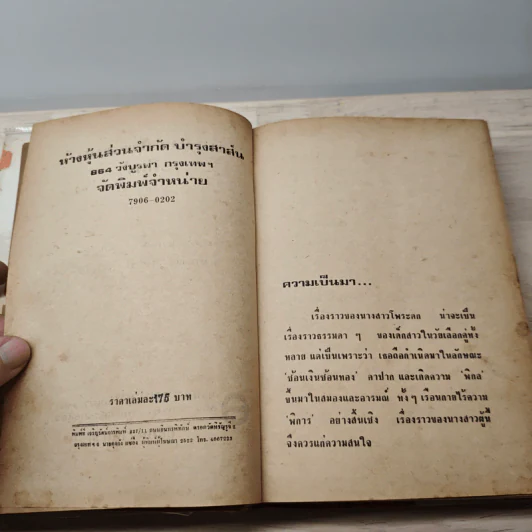 ห้างหุ้นส่วนจำกัด บำรุงสาส์น
864 วังบูรพา กรุงเทพฯ
จัดพิมพ์จำหน่าย
7906-0202
ราคาเล่มละ 175 บาท
ความเป็นมา...
เรื่องราวของนางสาวโพระดก น่าจะเป็น
เรื่องราวธรรมดา ๆ ของเด็กสาวในวัยเลือกคู่ทั้ง
หลาย แต่เป็นเพราะว่า เธอถือกำเนิดมาในลักษณะ
'ซ่อนเงินซ่อนทอง' คาปาก และเกิดความ 'พิกล'
ขึ้นมาในสมองและอารมณ์ ทั้ง ๆ เรือนกายไร้ความ
'พิการ' อย่างสิ้นเชิง เรื่องราวของนางสาวผู้นี้
จึงควรแก่ความสนใจ